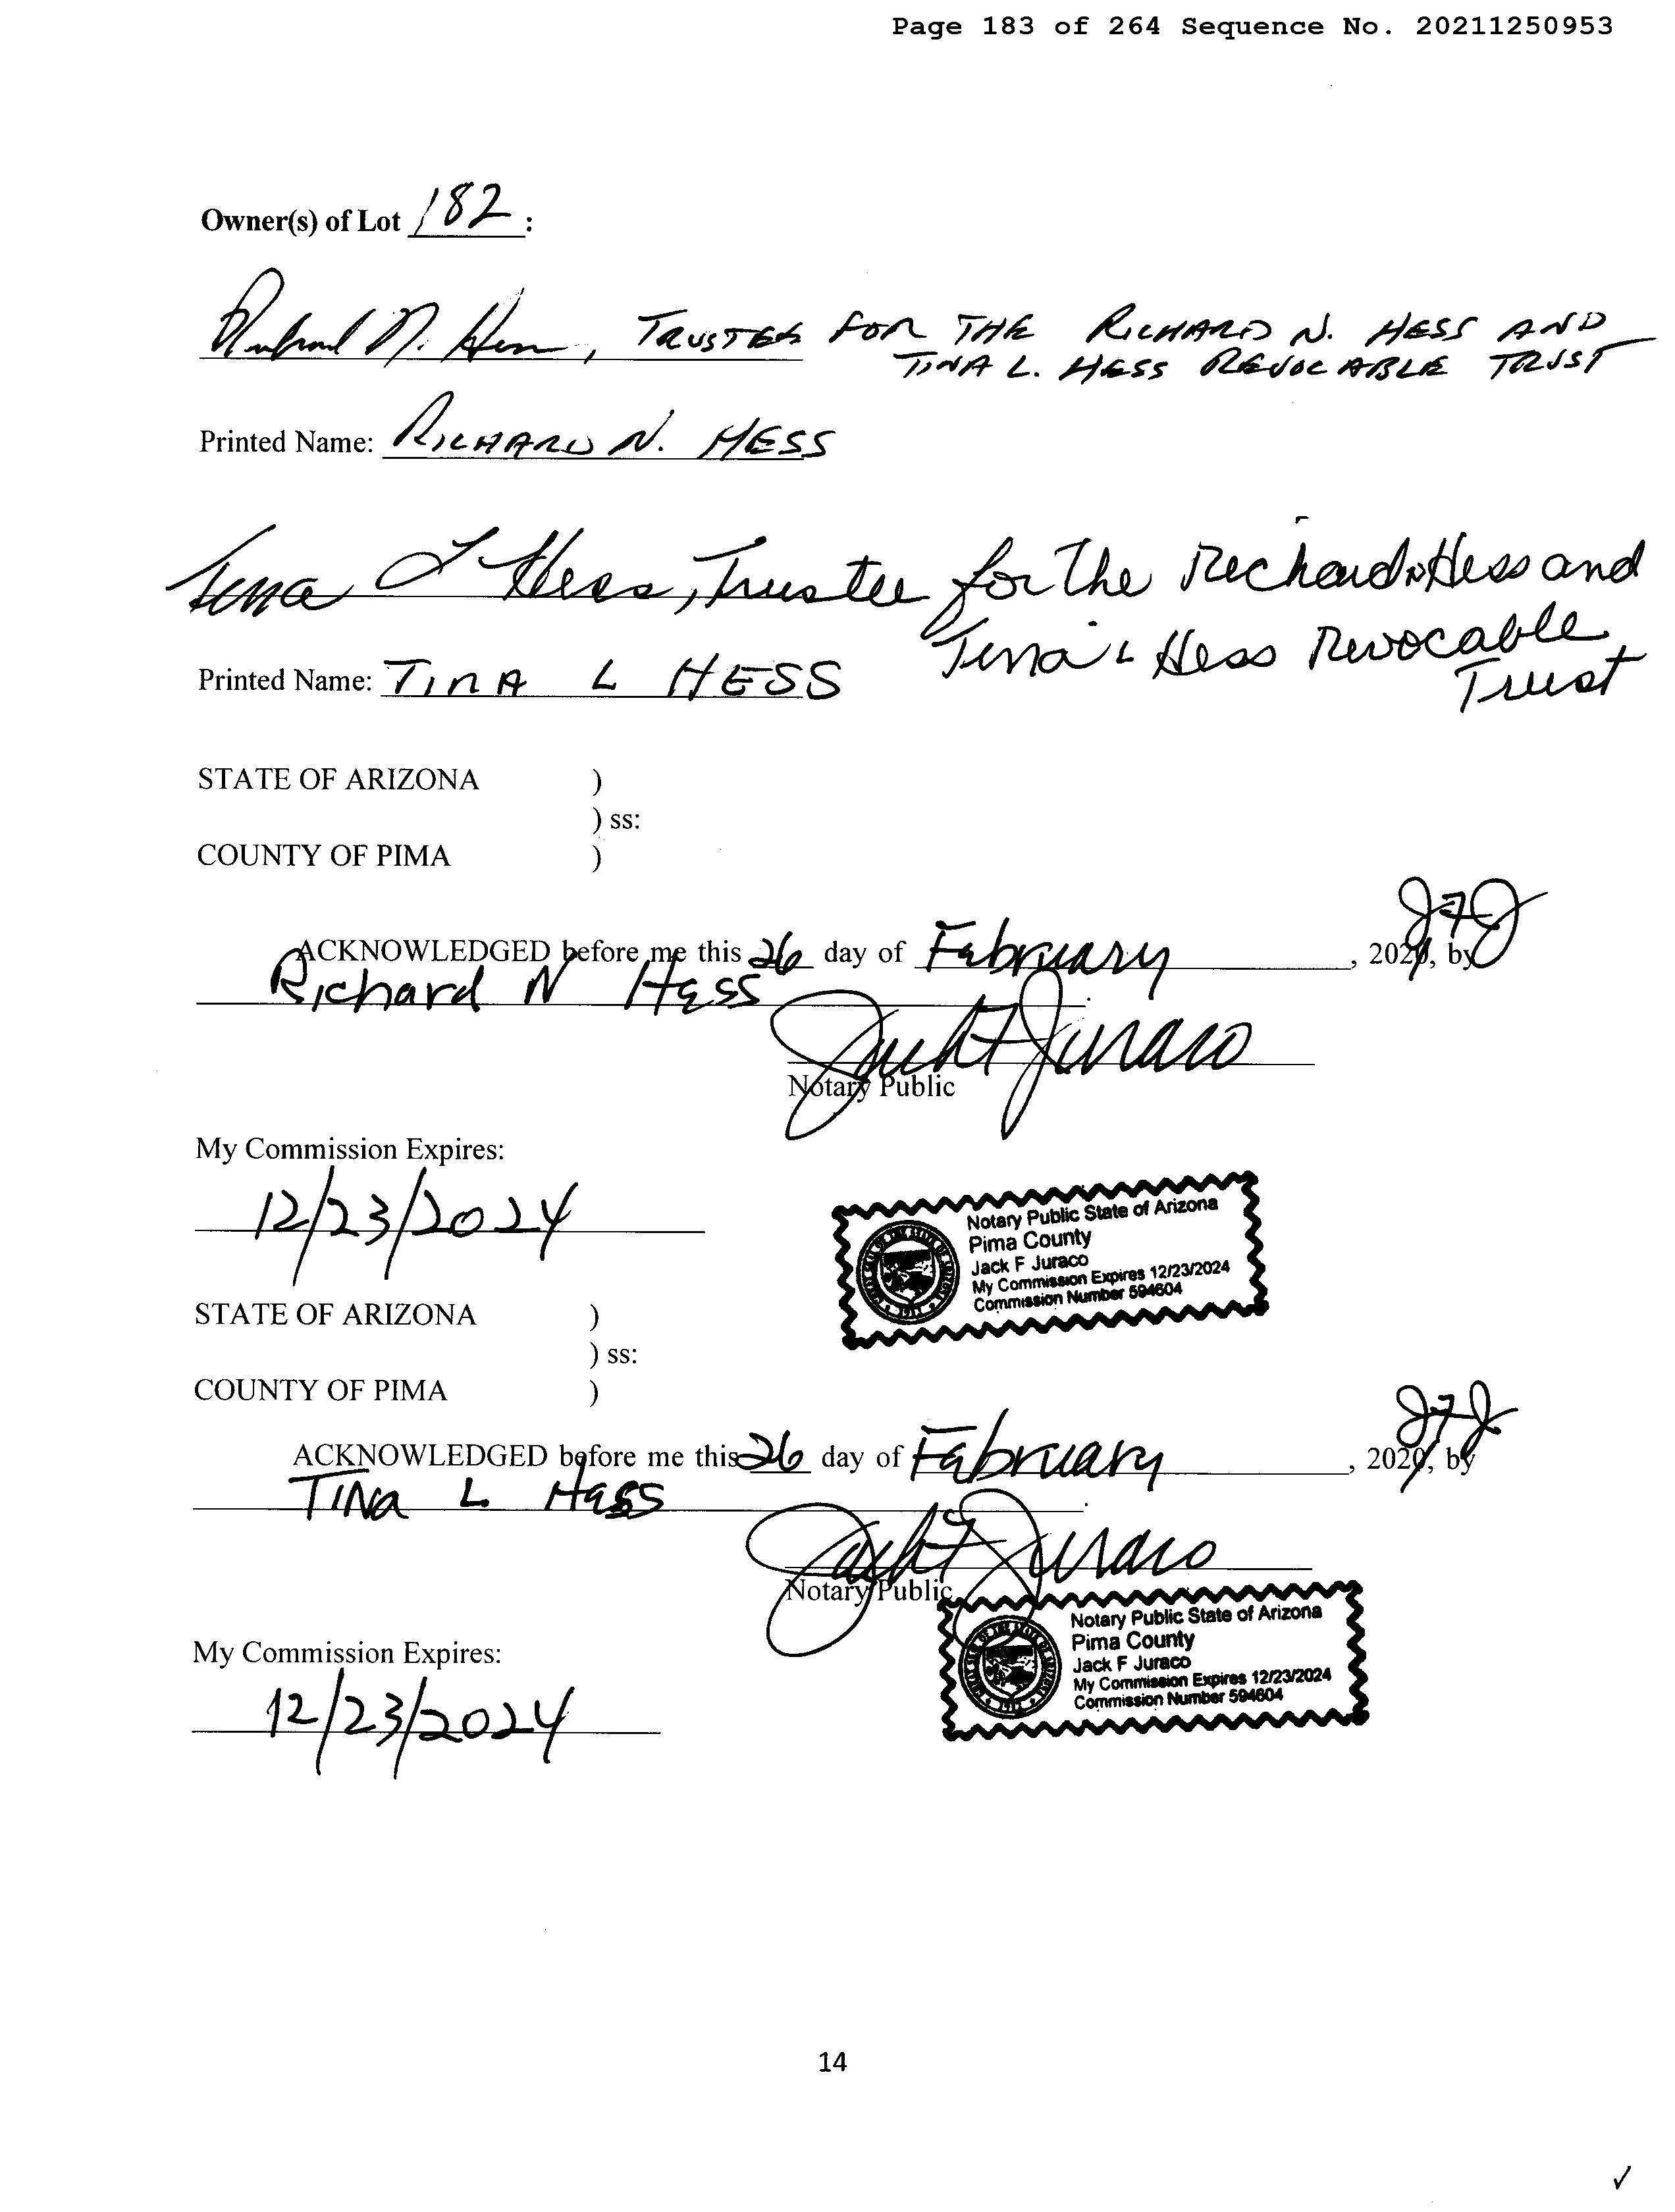 Page 183 of 264 Sequence No. 20211250953
Owner(s) of Lot 182:
Richard N. Hess, TRUSTEE FOR THE RICHARD N. HESS AND
TINA L. HESS REVOCABLE TRUST
Printed Name: RICHARD N. HESS
Tina L Hess, Trustee for The Richard N Hess and
Tina L Hess Revocable
Trust
Printed Name: TINA L HESS
STATE OF ARIZONA )
) ss:
COUNTY OF PIMA )
JFJ
ACKNOWLEDGED before me this 26 day of February, 202, by
Richard N Hess.
Jack F Juraco
Notary Public
My Commission Expires:
12/23/2024
Notary Public State of Arizona
Pima County
Jack F Juraco
My Commission Expires 12/23/2024
Commission Number 594604
STATE OF ARIZONA )
) ss:
COUNTY OF PIMA )
JFJ
ACKNOWLEDGED before me this 26 day of February, 202, by
TINA L Hess.
Jack F Juraco
Notary Public
Notary Public State of Arizona
Pima County
Jack F Juraco
My Commission Expires 12/23/2024
Commission Number 594604
My Commission Expires:
12/23/2024
14
✓